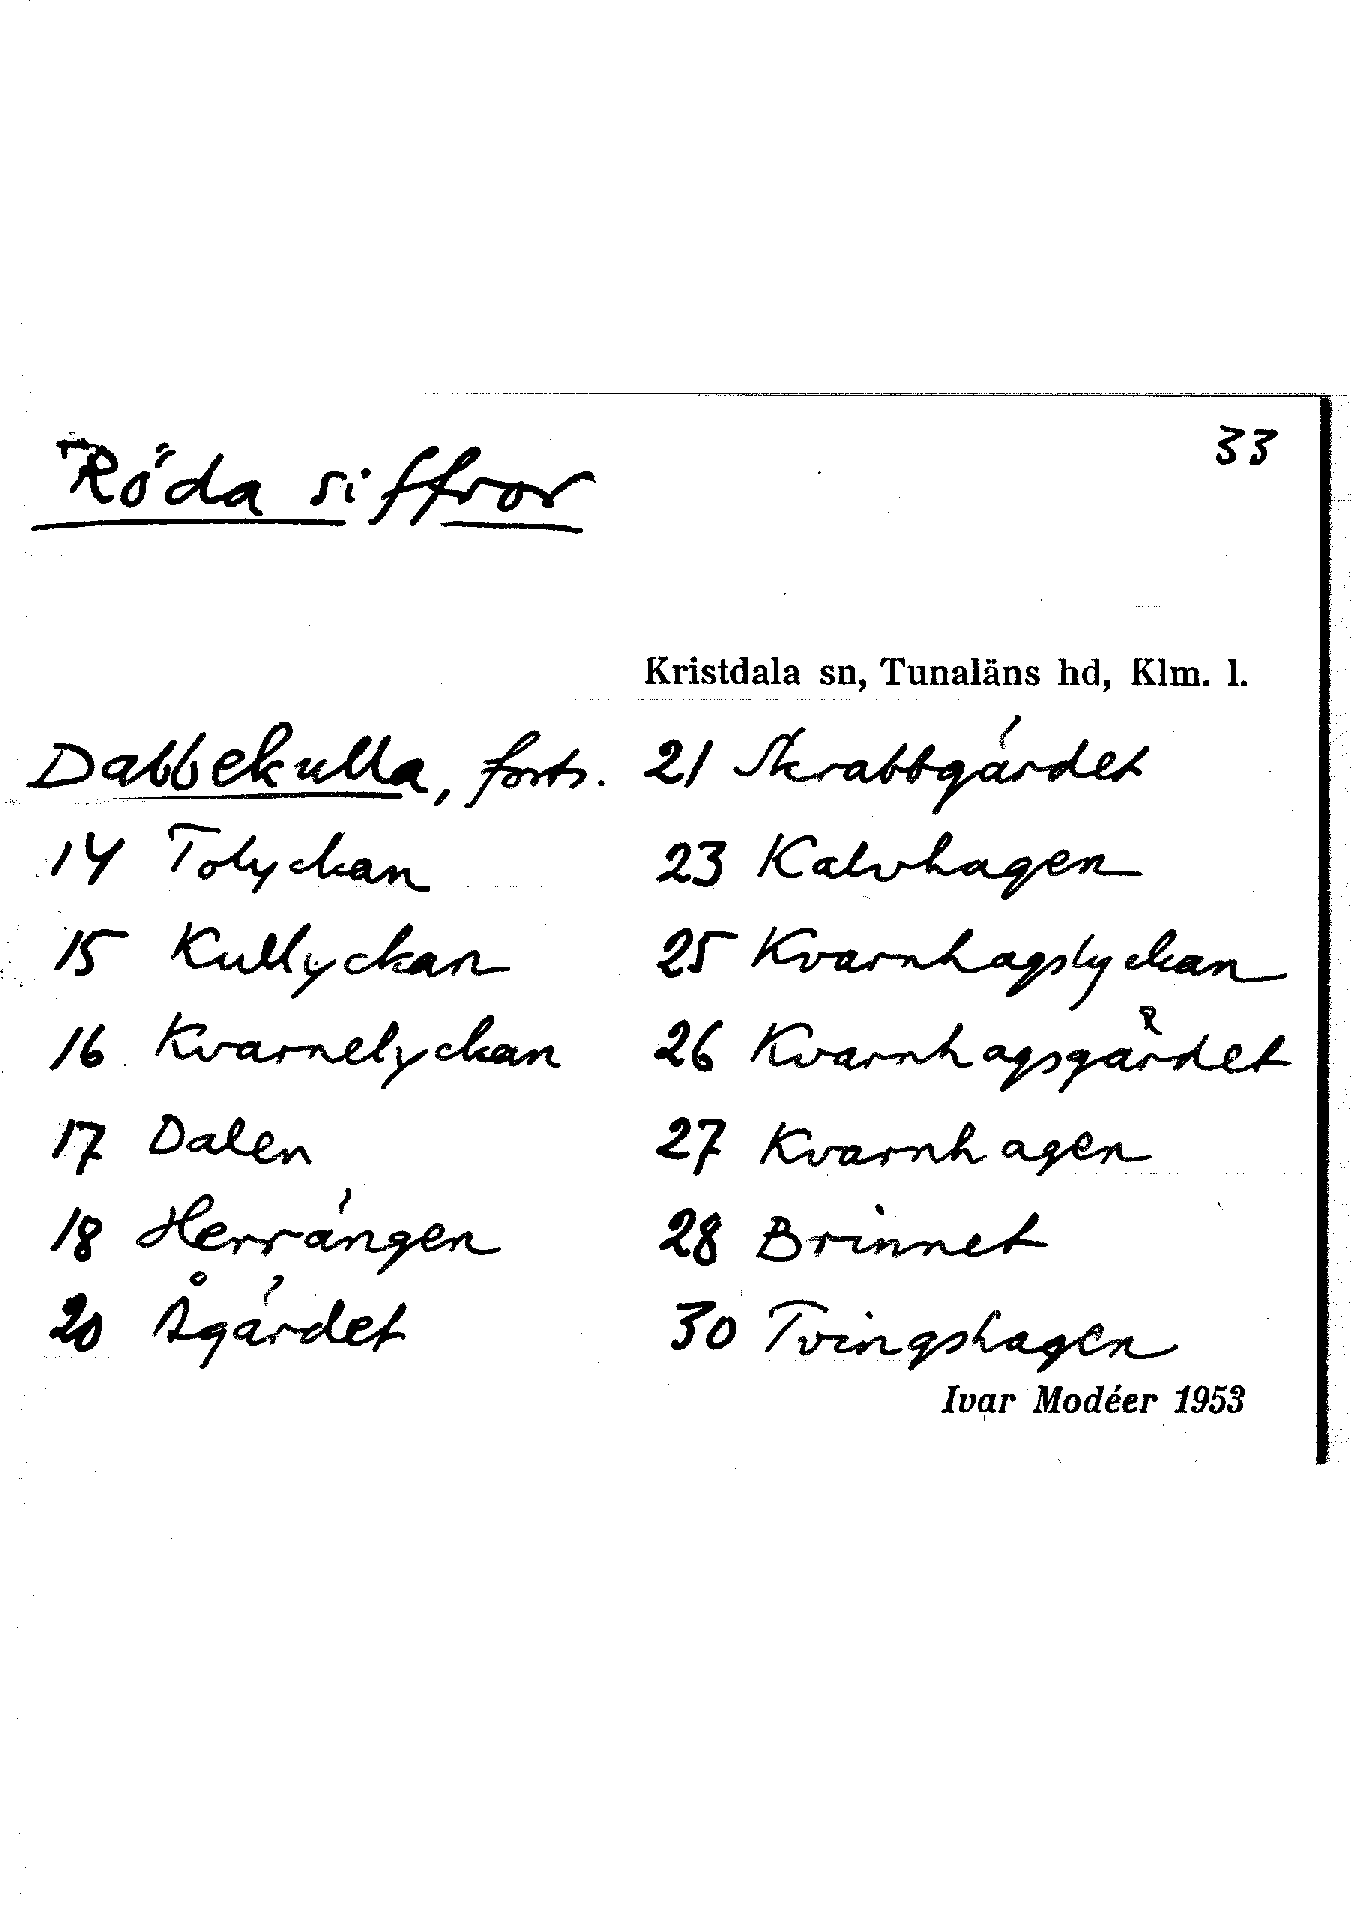 33
Röda siffror
Kristdala sn, Tunaläns hd, Klm. l.
Dabbekulla, forts.
14 Tolyckan
15 Kullyckan
16 Kvarnelyckan
17 Dalen
18 Herrängen
20 Ågärdet
21 Skrabbgärdet
23 Kalvhagen
25 Kvarnhagslyckan
26 Kvarnhagsgärdet
27 Kvarnhagen
28 Brinnet
30 Tvingshagen
Ivar Modéer 1953